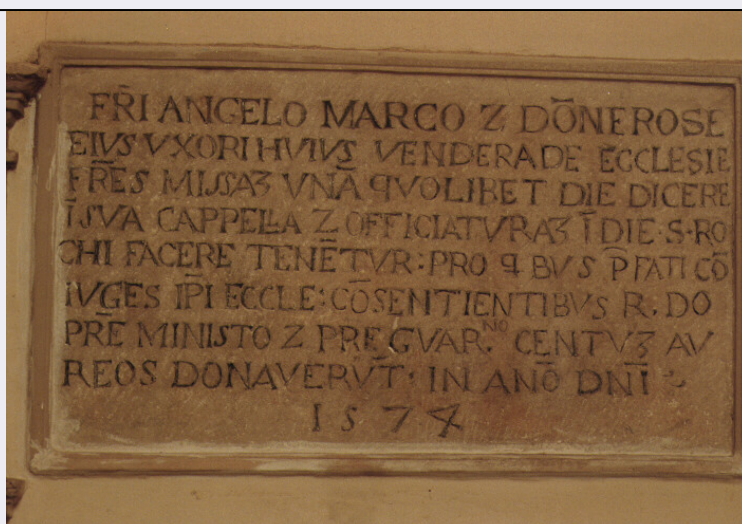 FR̄I ANGELO MARCO Z DŌNE ROSE
EIVS VXORI HVIVS VENDERADE ECCLESIE
FR̄ES MISSAꝫ VNĀ QVOLIBET DIE DICERE
Ī SVA CAPPELLA Z OFFICIATVRAꝫ Ī DIE·S·RO
CHI FACERE TENĒTVR:PRO QBVS P̄FATI CŌ
IVGES IP̄I ECCLE:CŌSENTIENTIBVS R. DO
PR̄E MINISTO Z PRE GVAR.NO CENTVꝫ AV
REOS DONAVERV̄T· IN ANŌ DNĪ
1574